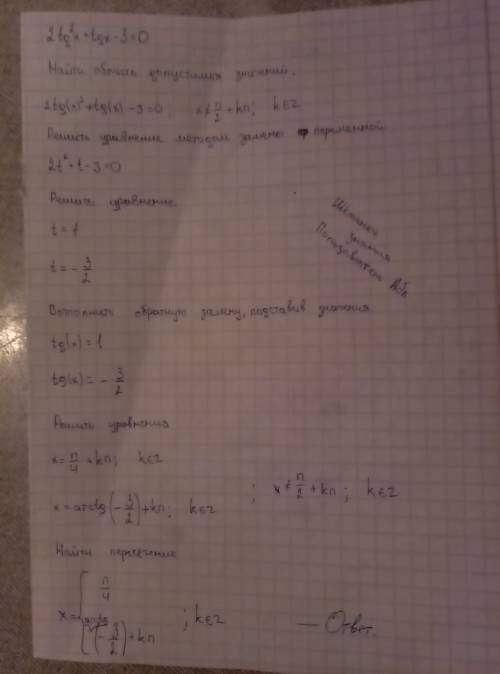 2tg²x+tgx-3=0
Найти область допустимых значений.
2tg(x)²+tg(x)-3=0; x≠π/2+kπ; k∈Z
Решить уравнение методом замены переменной.
2t²+t-3=0
Решить уравнение.
t=1
t=-3/2
Источник
знания
Пользователь
Выполнить обратную замену, подставив значения.
tg(x)=1
tg(x)=-3/2
Решить уравнения
x=π/4+kπ; k∈Z
x=arctg(-3/2)+kπ; k∈Z ; x≠π/2+kπ; k∈Z
Найти пересечение
π/4
x= ; k∈Z — Ответ.
(-3/2)+kπ